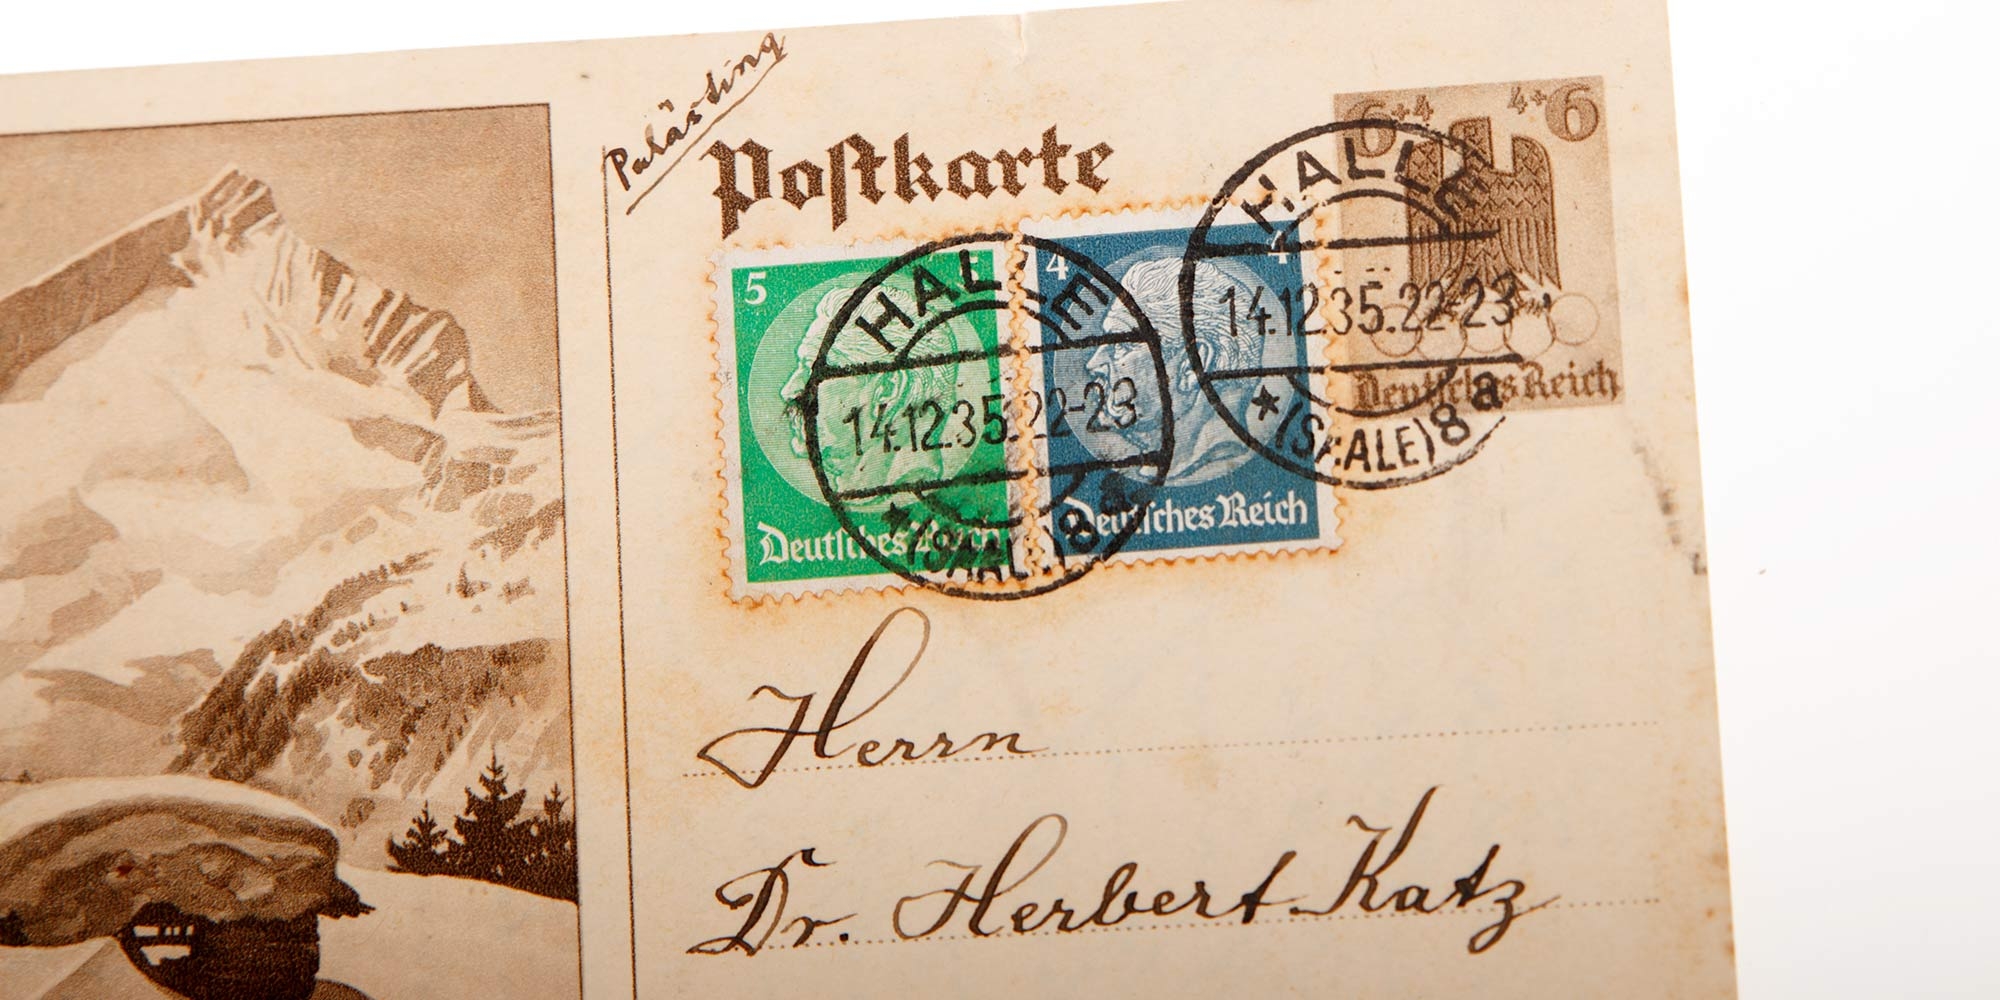 Palästina
Postkarte
6+4 4+6
Deutsches Reich
5
Deutsches Reich
4 4
Deutsches Reich
HALLE
14.12.35.22-23
* (SAALE) 8 a
HALLE
14.12.35.22-23
* (SAALE) 8 a
Herrn
Dr. Herbert Katz